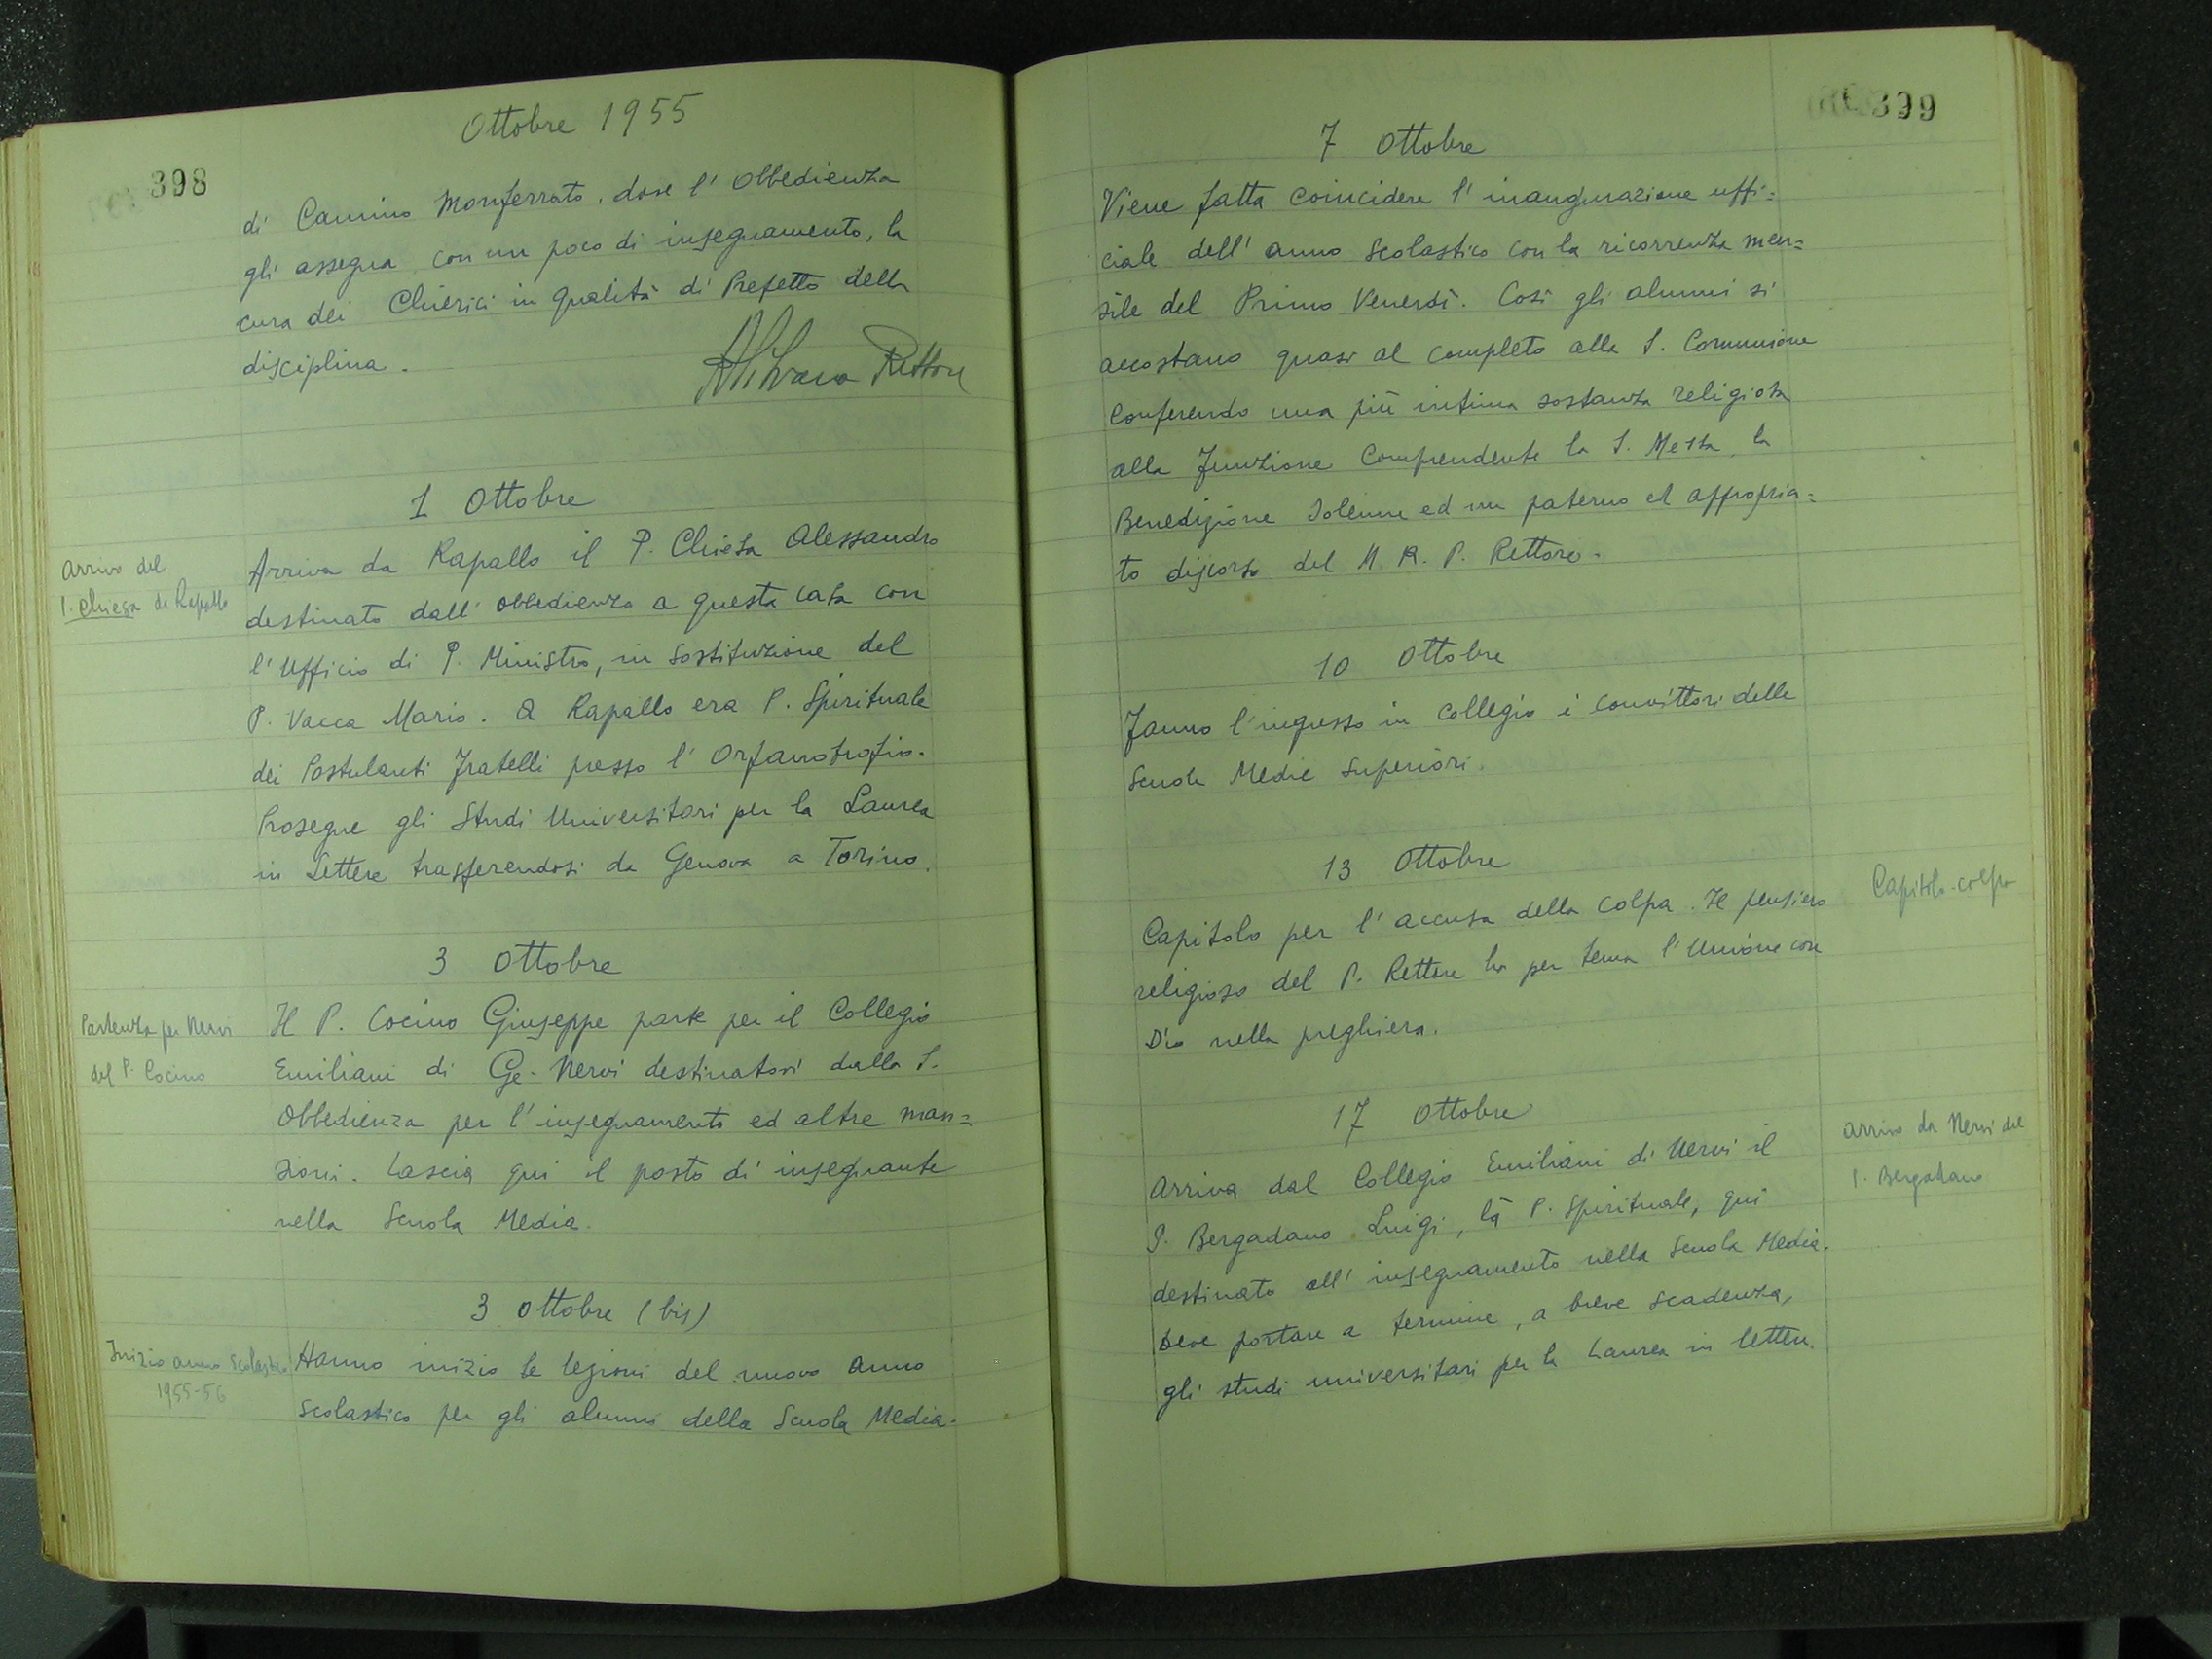 398
Ottobre 1955
di Camino Monferrato, dove l'Obbedienza
gli assegna, con un poco di insegnamento, la
cura dei Chierici in qualità di Prefetto della
disciplina.
Rettore
1 Ottobre
Arrivo del
P. Chiesa da Rapallo
Arriva da Rapallo il P. Chiesa Alessandro
destinato dall'obbedienza a questa casa con
l'Ufficio di P. Ministro, in sostituzione del
P. Vacca Mario. A Rapallo era P. Spirituale
dei Postulanti Fratelli presso l'Orfanotrofio.
Prosegue gli Studi Universitari per la Laurea
in Lettere trasferendosi da Genova a Torino.
3 Ottobre
Partenza per Nervi
del P. Cocino
Il P. Cocino Giuseppe parte per il Collegio
Emiliani di Ge-Nervi destinatosi dalla S.
Obbedienza per l'insegnamento ed altre man=
sioni. Lascia qui il posto di insegnante
nella Scuola Media.
3 Ottobre (bis)
Inizio anno scolastico
1955-56
Hanno inizio le lezioni del nuovo anno
scolastico per gli alunni della Scuola Media.
399
7 Ottobre
Viene fatta coincidere l'inaugurazione uffi=
ciale dell'anno scolastico con la ricorrenza men=
sile del Primo Venerdì. Così gli alunni si
accostano quasi al completo alla S. Comunione
conferendo una più intima sostanza religiosa
alla funzione comprendente la S. Messa, la
Benedizione solenne ed un paterno ed appropria=
to discorso del M. R. P. Rettore.
10 Ottobre
Fanno l'ingresso in Collegio i convittori delle
Scuole Medie Superiori.
13 Ottobre
Capitolo-colpa
Capitolo per l'accusa della colpa. Il pensiero
religioso del P. Rettore ha per tema l'Unione con
Dio nella preghiera.
17 Ottobre
Arrivo da Nervi del
P. Bergadano
Arriva dal Collegio Emiliani di Nervi il
P. Bergadano Luigi, là P. Spirituale, qui
destinato all'insegnamento nella Scuola Media.
Deve portare a termine, a breve scadenza,
gli studi universitari per la Laurea in lettere.